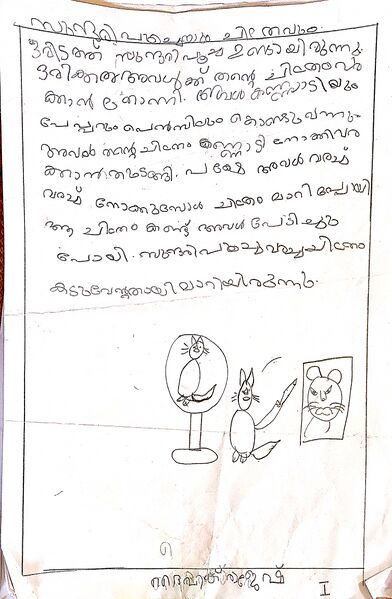 സുന്ദരിപൂച്ചയും ചിത്രവും
ഒരിടത്ത് സുന്ദരിപൂച്ച ഉണ്ടായിരുന്നു.
ഒരിക്കൽ അവൾക്ക് തൻ്റെ ചിത്രം വര
ക്കാൻ തോന്നി. അവൾ കണ്ണാടിയും
പേപ്പറും പെൻസിലും കൊണ്ടുവന്നു.
അവൾ തൻ്റെ ചിത്രം കണ്ണാടി നോക്കി വര
ക്കാൻ തുടങ്ങി. പക്ഷേ അവൾ വരച്ച്
വരച്ച് നോക്കുമ്പോൾ ചിത്രം മാറി പ്പോയി
ആ ചിത്രം കണ്ട് അവൾ പേടിച്ചു
പോയി. സുന്ദരിപൂച്ച വരച്ച ചിത്രം
കടുവേടതായി മാറിയിരുന്നു.
I